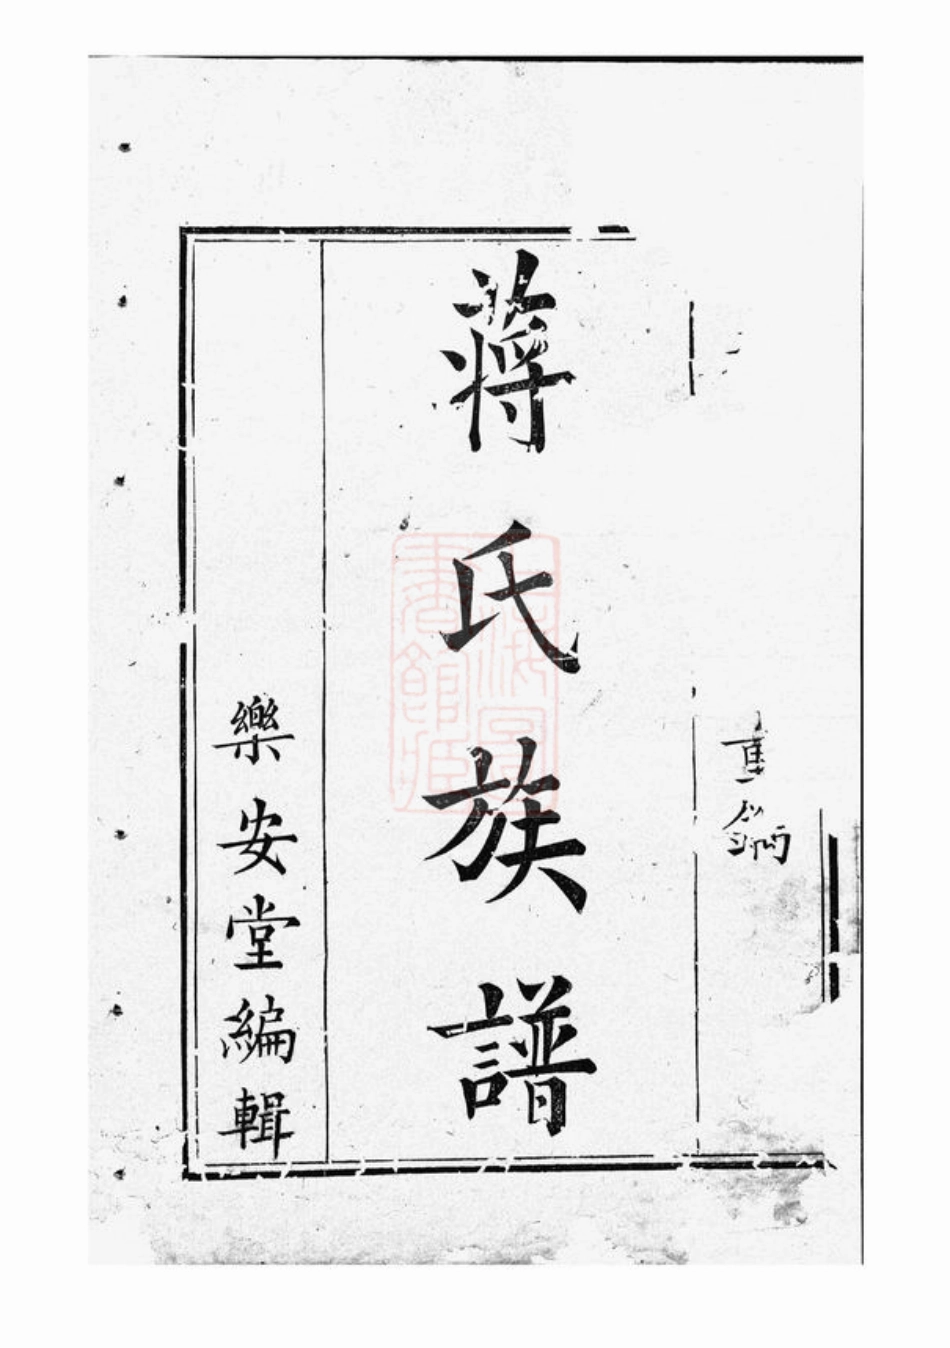 重鐫
蔣氏族譜
樂安堂編輯